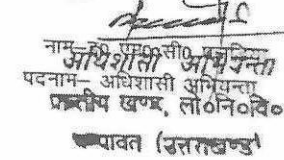 नाम
अधिशासी अभियन्ता
पदनाम– अधिशासी अभियन्ता
प्रान्तीय खण्ड, लो०नि०वि०
पावत (उत्तराखण्ड)